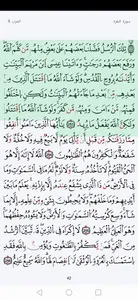 سورة البقرة
تِلْكَ الرُّسُلُ فَضَّلْنَا بَعْضَهُمْ عَلَىٰ بَعْضٍ مِّنْهُم مَّن كَلَّمَ اللَّهُ
وَرَفَعَ بَعْضَهُمْ دَرَجَاتٍ وَآتَيْنَا عِيسَى ابْنَ مَرْيَمَ الْبَيِّنَاتِ
وَأَيَّدْنَاهُ بِرُوحِ الْقُدُسِ وَلَوْ شَاءَ اللَّهُ مَا اقْتَتَلَ الَّذِينَ مِن
بَعْدِهِم مِّن بَعْدِ مَا جَاءَتْهُمُ الْبَيِّنَاتُ وَلَٰكِنِ اخْتَلَفُوا
فَمِنْهُم مَّنْ آمَنَ وَمِنْهُم مَّن كَفَرَ وَلَوْ شَاءَ اللَّهُ مَا اقْتَتَلُوا
وَلَٰكِنَّ اللَّهَ يَفْعَلُ مَا يُرِيدُ ٢٥٣ يَا أَيُّهَا الَّذِينَ آمَنُوا
أَنفِقُوا مِمَّا رَزَقْنَاكُم مِّن قَبْلِ أَن يَأْتِيَ يَوْمٌ لَّا بَيْعٌ فِيهِ وَلَا خُلَّةٌ
وَلَا شَفَاعَةٌ وَالْكَافِرُونَ هُمُ الظَّالِمُونَ ٢٥٤ اللَّهُ لَا إِلَٰهَ إِلَّا هُوَ
الْحَيُّ الْقَيُّومُ لَا تَأْخُذُهُ سِنَةٌ وَلَا نَوْمٌ لَّهُ مَا فِي السَّمَاوَاتِ وَمَا فِي
الْأَرْضِ مَن ذَا الَّذِي يَشْفَعُ عِندَهُ إِلَّا بِإِذْنِهِ يَعْلَمُ مَا بَيْنَ
أَيْدِيهِمْ وَمَا خَلْفَهُمْ وَلَا يُحِيطُونَ بِشَيْءٍ مِّنْ عِلْمِهِ إِلَّا
بِمَا شَاءَ وَسِعَ كُرْسِيُّهُ السَّمَاوَاتِ وَالْأَرْضَ وَلَا يَئُودُهُ
حِفْظُهُمَا وَهُوَ الْعَلِيُّ الْعَظِيمُ ٢٥٥ لَا إِكْرَاهَ فِي الدِّينِ قَد تَّبَيَّنَ
الرُّشْدُ مِنَ الْغَيِّ فَمَن يَكْفُرْ بِالطَّاغُوتِ وَيُؤْمِن بِاللَّهِ فَقَدِ
اسْتَمْسَكَ بِالْعُرْوَةِ الْوُثْقَىٰ لَا انفِصَامَ لَهَا وَاللَّهُ سَمِيعٌ عَلِيمٌ ٢٥٦
42